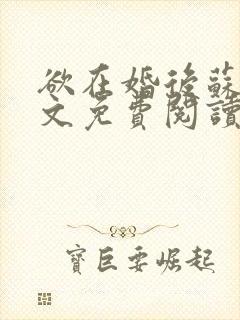 欲在婚後蘇
文免費閱讀
寶巨要崛起